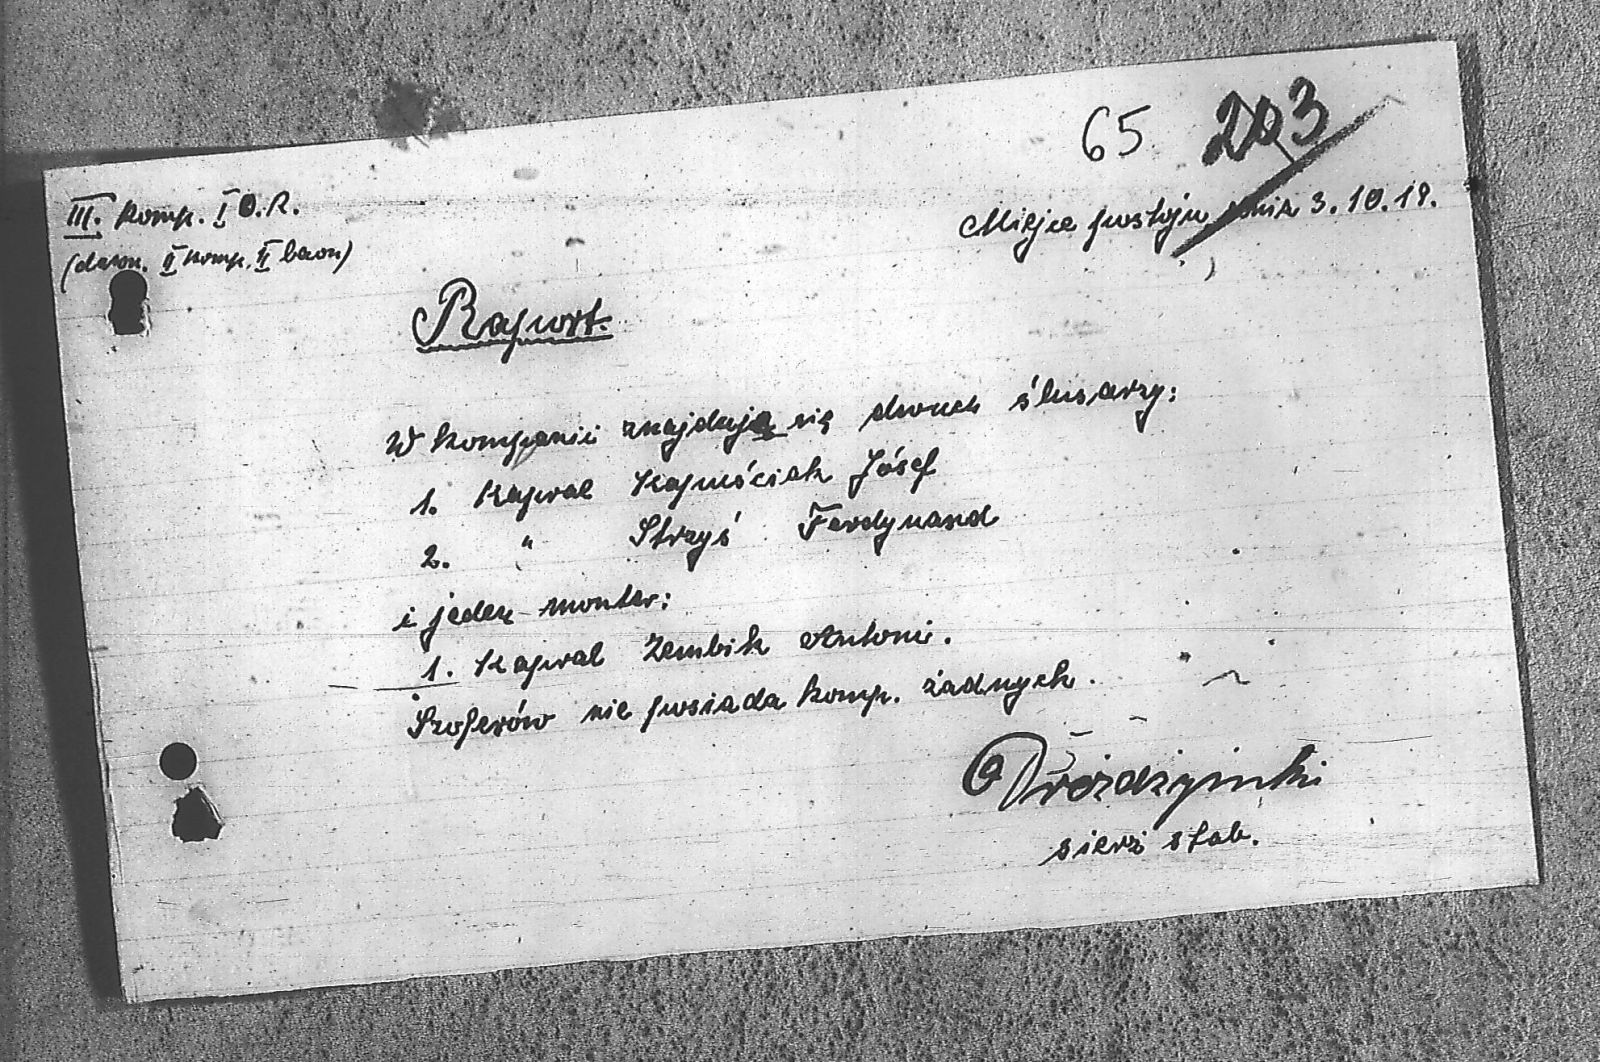 65 203
III. Komp. I O.R.
Miejce postoju dnia 3.10.19.
(dawn. II komp. II baon)
Raport.
W kompanii znajduja się dwuch ślusarzy:
1. Kapral Kapuściak Józef
2. " Strzyś Ferdynand
i jeden monter:
1. Kapral Zembik Antoni.
Szoferów nie posiada komp. żadnych.
Dróżdżyński
sierż stab.